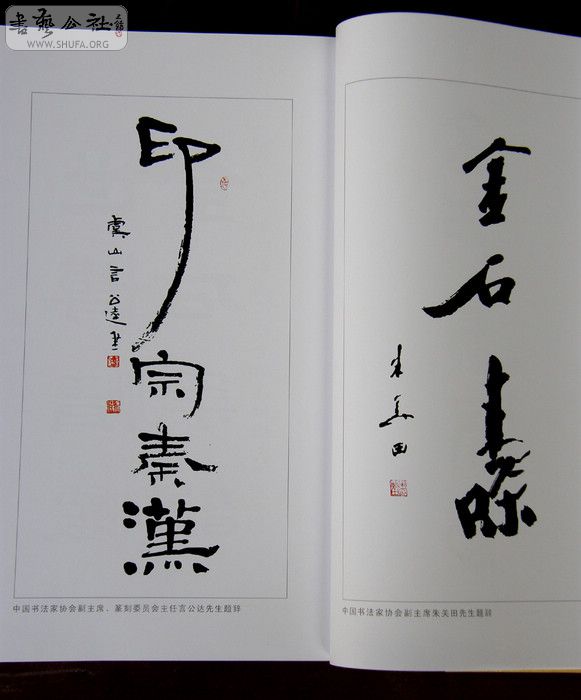 書藝公社
WWW.SHUFA.ORG
印宗秦漢
虞山言公達
中国书法家协会副主席、篆刻委员会主任言公达先生题辞
金石
朱关田
中国书法家协会副主席朱关田先生题辞